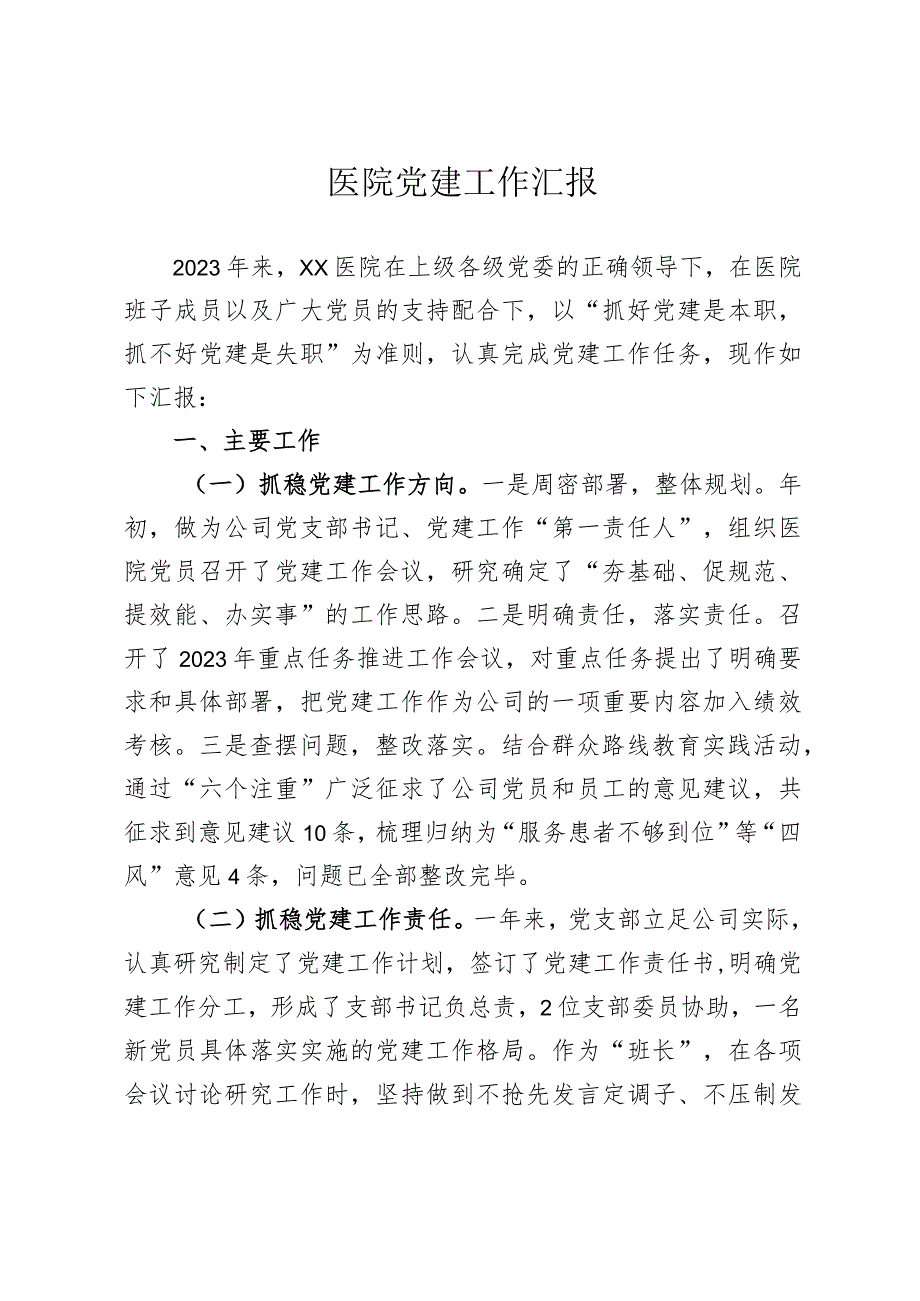 医院党建工作汇报
2023年来，XX医院在上级各级党委的正确领导下，在医院
班子成员以及广大党员的支持配合下，以“抓好党建是本职，
抓不好党建是失职”为准则，认真完成党建工作任务，现作如
下汇报：
一、主要工作
（一）抓稳党建工作方向。一是周密部署，整体规划。年
初，做为公司党支部书记、党建工作“第一责任人”，组织医
院党员召开了党建工作会议，研究确定了“夯基础、促规范、
提效能、办实事”的工作思路。二是明确责任，落实责任。召
开了2023年重点任务推进工作会议，对重点任务提出了明确要
求和具体部署，把党建工作作为公司的一项重要内容加入绩效
考核。三是查摆问题，整改落实。结合群众路线教育实践活动，
通过“六个注重”广泛征求了公司党员和员工的意见建议，共
征求到意见建议10条，梳理归纳为“服务患者不够到位”等“四
风”意见4条，问题已全部整改完毕。
（二）抓稳党建工作责任。一年来，党支部立足公司实际，
认真研究制定了党建工作计划，签订了党建工作责任书,明确党
建工作分工，形成了支部书记负总责，2位支部委员协助，一名
新党员具体落实实施的党建工作格局。作为“班长”，在各项
会议讨论研究工作时，坚持做到不抢先发言定调子、不压制发